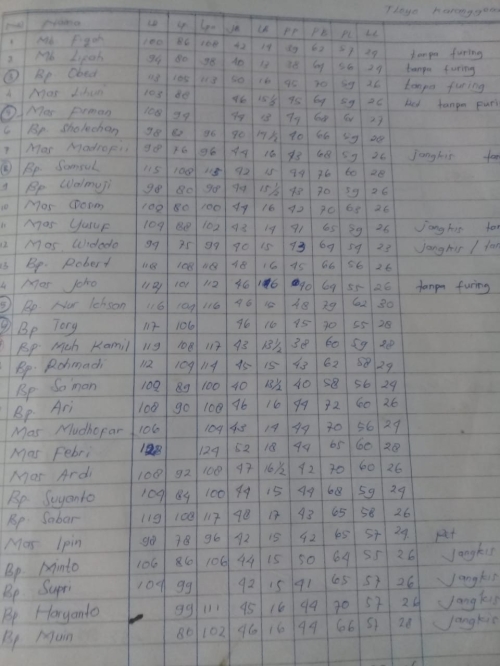 nama LD LP LPa JB LR PP PB PL LL
1 Mb Figoh 100 86 108 42 14 39 62 57 24 tanpa furing
2 Mb Lipah 94 80 98 40 13 38 64 56 24 tanpa furing
3 Bp Obed 105 113 50 16 45 70 59 26 tanpa furing
4 Mas Lilin 103 88 46 15½ 45 64 59 26 tanpa
5 Mas Firman 108 94 44 18 44 68 61 27
6 Bp Sholechan 98 82 96 40 14½ 40 66 59 28
7 Mas Madrofii 98 76 96 44 16 43 68 59 26 jangkis
8 Bp Samsul 115 108 115 42 15 44 76 60 28
9 Bp Walmuji 98 80 98 44 15½ 43 70 59 26
Mas Qosim 102 80 100 44 16 42 70 65 26
Mas Yusuf 104 88 102 43 14 41 65 59 26 jangkis
12 Mas Widodo 94 75 94 40 15 43 64 54 23 jangkis /
13 Bp. Robert 118 108 118 48 16 45 66 56 26
Mas Joko 112 101 112 46 16 40 64 55 26 tanpa furing
Bp Nur Ichsan 116 104 116 46 48 79 62 30
Bp Tory 117 106 46 16 45 70 55 28
Bp Moh Kamil 119 108 117 43 13½ 38 60 59 28
Bp. Rohmadi 112 104 114 45 15 43 62 58 24
Bp Sa'man 102 89 100 40 13½ 40 58 56 24
Bp. Ari 108 90 108 46 16 44 72 60 26
Mas Mudhofar 106 104 43 14 44 70 56 24
Mas Febri 128 124 52 18 44 65 60 28
Mas Ardi 108 92 108 47 16½ 42 70 60 26
Bp Suyanto 104 84 100 44 15 44 68 59 24
Bp Sabar 119 108 117 48 17 43 65 58 26
Mas Ipin 98 78 96 42 15 42 65 57 24 pet
Bp Minto 106 86 106 44 15 50 64 55 26 jangkis
Bp Supri 104 99 42 15 41 65 57 26 jangkis
Bp Haryanto 99 111 45 16 44 70 57 26 jangkis
Bp Muin 80 102 46 16 44 66 57 28 jangkis